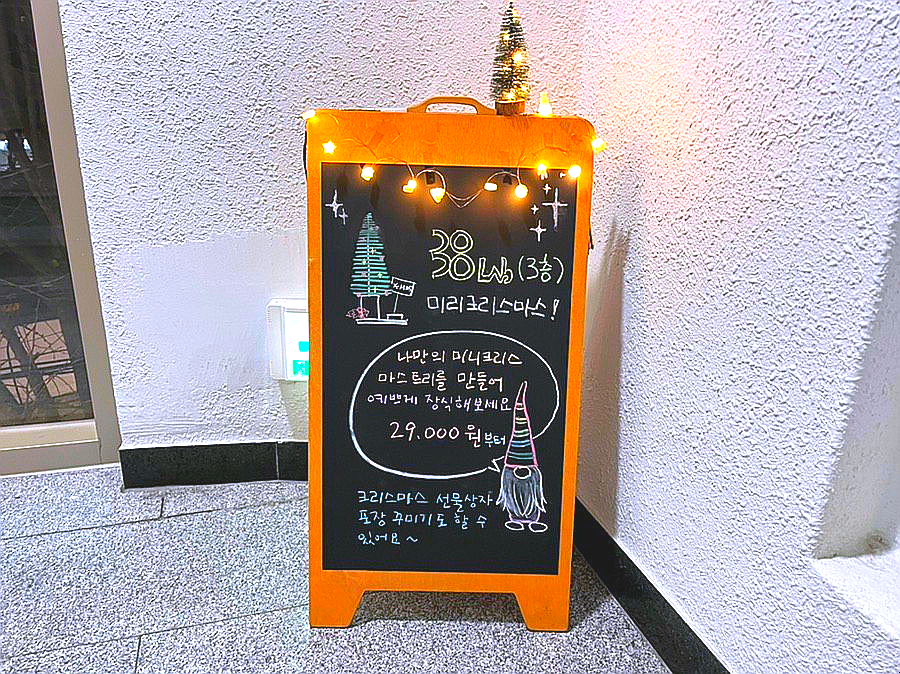 38 Lab (3층)
미리크리스마스!
나만의 미니크리스
마스트리를 만들어
예쁘게 장식해보세요
29.000원부터
크리스마스 선물상자
포장 꾸미기도 할 수
있어요~